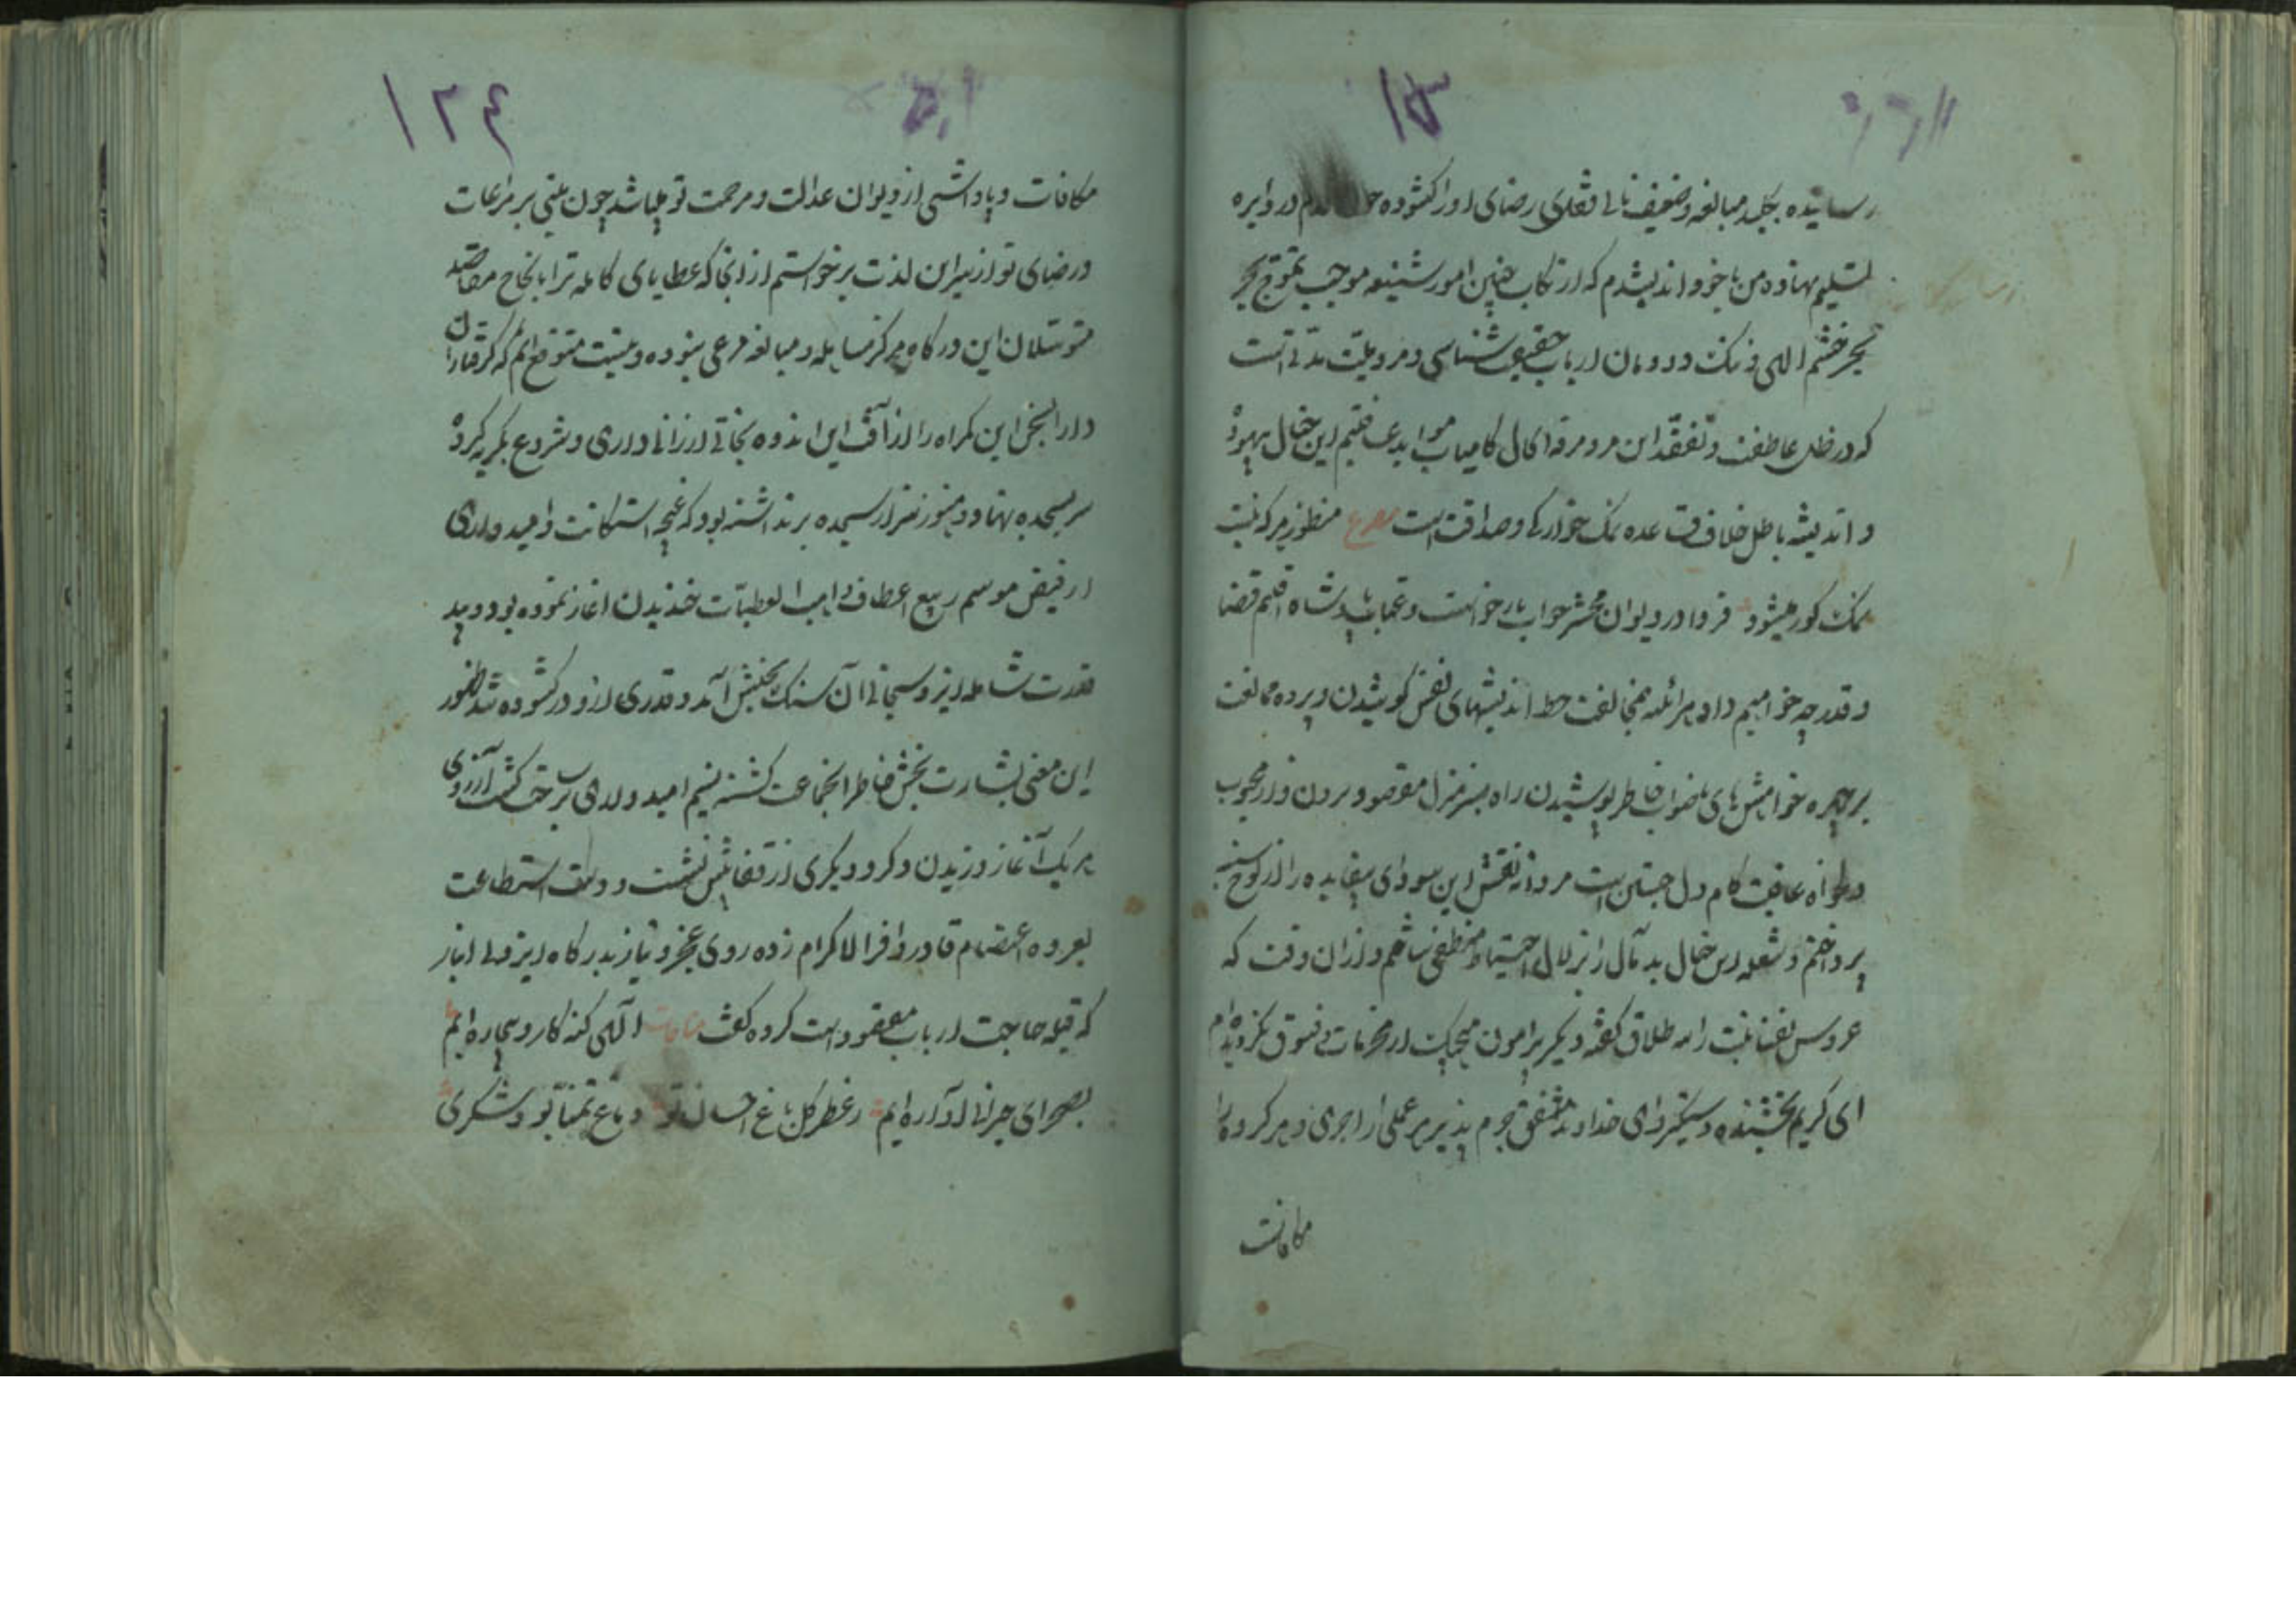 رسانیده بکلید مبالغه و ضعیف نالی قفلدی رضای او را کشوده در دایره
تسلیم نهاده من با خود اندیشیدم که ارتکاب چنین امور شنیعه موجب تموج بحر
بحر خشم الهی و ننک دودمان ارباب حقیقت شناسی و مروتیت مدتی است
که در ظل عاطفت و تفقد این مرد مرفه الحال کامیاب این خیال بیهوده
و اندیشه باطل خلاف قاعده نمک خوارکی و صداقت است مصرع منظور هر که نیست
نمک کور میشود فردا در دیوان محشر جواب بازخواست و عتاب پادشاه اقلیم قضا
و قدر چه خواهیم داد هر آئنه بمخالفت خط اندیشهای نفس کوشیدن و پرده ممانعت
بر چهره خواهش های ناصواب خاطر پوشیدن راه بسرمنزل مقصود بردن و از محبوب
دلخواه عاقبت کام دل جستن است مردانه نقش این سودای بیفایده را از لوح سینه
پرداختم و شعله این خیال بدمآل را بزلال احتیاط منطفی ساختم و از ان وقت که
عروس نفسانیت را سه طلاق کفته دیکر پیرامون هیچیک از محرمات فسوق نکردیده‌ام
ای کریم بخشنده دستکیر و ای خداوند مشفق جرم پذیر هر عملی را اجری و هر کرده را
مکافات
۱۲۴
مکافات و پاداشی از دیوان عدالت و مرحمت تو میباشد چون مبتنی بر مراعات
و رضای تو از سر این لذت برخواستم از انجا که عطایای کامله ترا بانجاح مقاصد
متوسلان این درکاه هرکز مساهله و مبالغه مرعی نبوده و نیست متوقع‌ام که کرفتاران
دار السجن این کمراه را از آفت این اندوه نجاتی ارزانی داری و شروع بکریه کرده
سر بسجده نهاد و هنوز سر از سجده برنداشته بود که غنچه استکانت و امیدواری
از فیض موسم ربیع اعطاف واهب العطیات خندیدن اغاز نموده بود و بید
قدرت شامله ایزد سبحانی آن سنک بجنبش آمد و قدری از و در کشوده شد ظهور
این معنی بشارت بخش خاطر انجماعت کشته نسیم امیدواری بر کشت آرزوی
هر یک آغاز وزیدن کرد و دیکری از قفایش نشست و دست استطاعت
بعروه اعتصام قادر وافر الاکرام زده روی عجز و نیاز بدرکاه ایزد بی انباز
که قبله حاجت ارباب مقصود است کرده کفت مناجات الهی کنه کار و بیچاره‌ایم
بصحرای حیرانی آواره‌ایم ز عطر کل باغ احسان تو دماغ تمنا بود مشکری